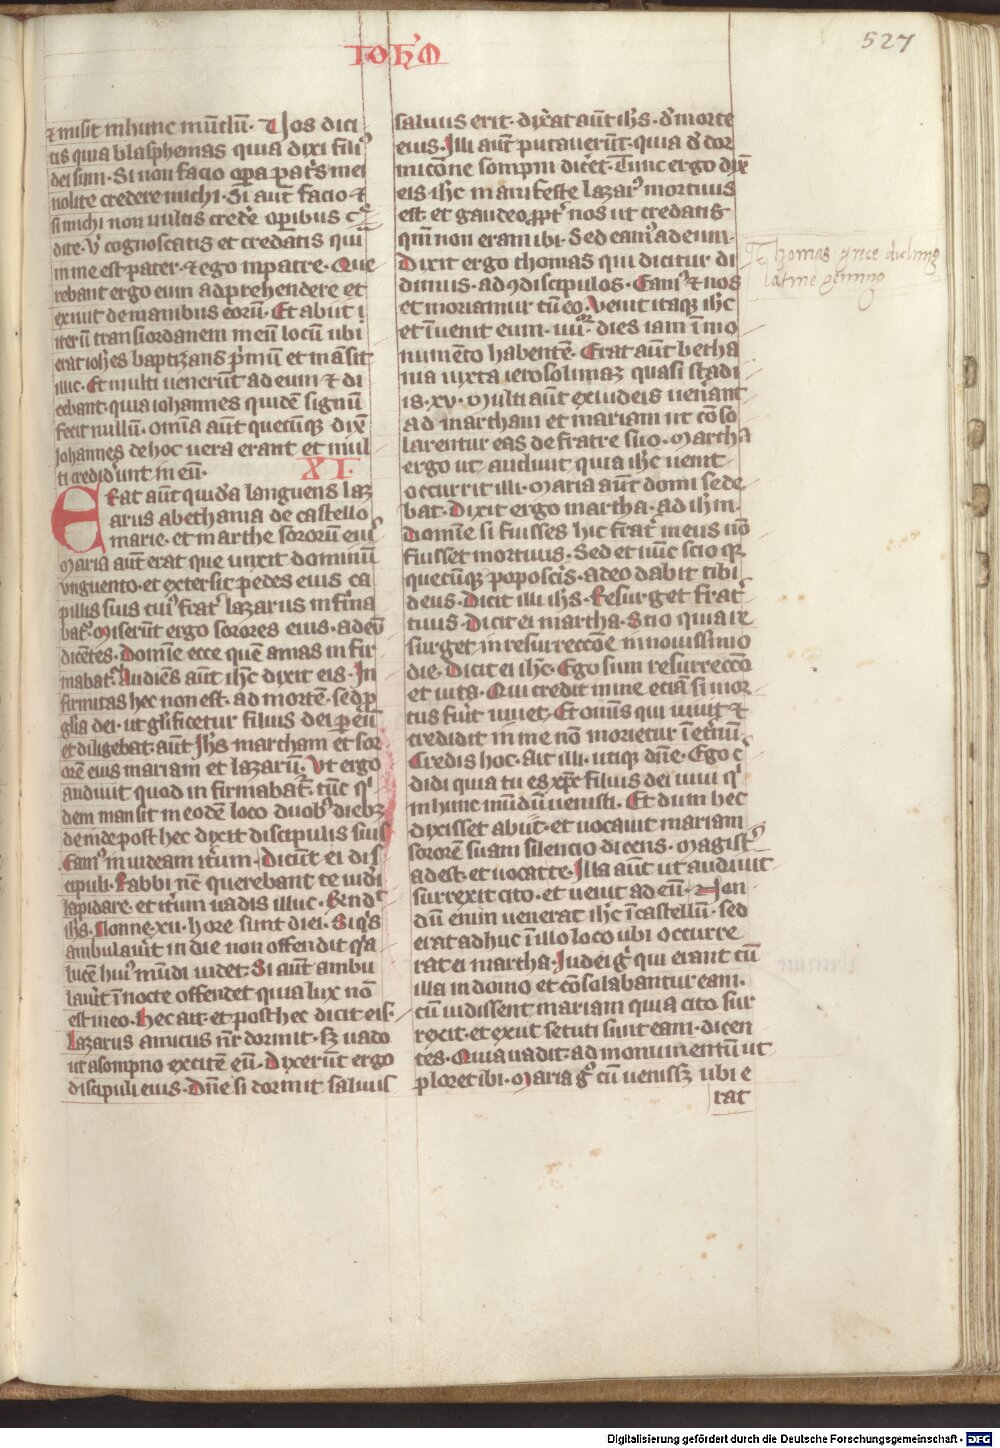 527
IOHM
⁊ misit in hunc mūdū. Uos dici
tis quia blasphemas quia dixi filiꝰ
dei sum. Si non facio oꝑa patͥs mei
nolite credere michi. Si aut̄ facio ⁊
si michi non uultis cred'e oꝑibus c̓
dite. Vͭ cognoscatis et credatis quia
in me est pater. ⁊ ego in patre. Que
rebant ergo eum adprehendere et
exiuit de manibus eorū. Et abiit i
iterū trans iordanem in eū locū ubi
erat ioh̄es baptizans pͥmū et māsit
illuc. Et multi uenerūt ad eum ⁊ di
cebant. quia iohannes quidē signū
fecit nullū. Omīa aūt quecūqꝫ dix̄
iohannes de hoc uera erant et mul
ti credid'unt in eū.
XI.
Erat aūt quidā languens laz
arus a bethania de castello
marie. et marthe sororū eiꝰ
Maria aūt erat que unxit dominū
unguento. et extersit pedes eius ca
pillis suis cuiꝰ frat̓ lazarus infirma
bat̓. Miserūt ergo sorores eius. ad eū
dicētes. Domīe ecce quē amas infir
mabat̓. Audiēs aūt ih̄c dixit eis. In
firmitas hec non est. ad mortē. sed ꝓ
glīa dei. ut glificetur filius dei ꝑ eū
et diligebat. aūt Ih̄s martham et sor
orē eius mariam et lazarū. Vt ergo
audiuit quod infirmabat̓. tūc qͥ
dem mansit in eodē loco duobꝰ diebꝫ
deinde post hec dixit discipulis suis
Eamꝰ in iudeam it̓um. Dicūt ei dis
cipuli. Rabbi nūc querebant te iud'i
lapidare. et it̓um uadis illuc. Rēndͭ
ih̄s. Nonne. xii. hore sunt diei. Si qͥs
ambulau'it in die non offendit qͥa
lucē huiꝰ mūdi uidet. Si aūt ambu
lau'it ī nocte offendet quia lux nō
est in eo. Hec ait. et post hec dicit eis.
Lazarus amicus nr̄ dormit. sꝫ uado
ut a sompno excitē eū. Dixerūt ergo
discipuli eius. Dn̄e si dormit saluus
saluus erit. dix̓at aūt ih̄s. d' morte
eius. Illi aūt putauerūt. quia d' dor
micōne sompni dic̓et. Tunc ergo dix̄
eis ih̄c manifeste lazarꝰ mortuus
est. et gaudeo ꝓpt̓ uos ut credatis
qm̄ non eram ibi. Sed eamꝰ ad eum.
Dixit ergo thomas qui dicitur di
dimus. ad ꝯdiscipulos. Eamꝰ ⁊ nos
et moriamur cū eo. Venit itaqꝫ ih̄c
et īuenit eum. iiiiᵒʳ. dies iam ī mo
numēto habentē. Erat aūt betha
nia iuxta ierosolimaꝫ quasi stadi
is. xv. Multi aūt ex iudeis uen̓ant
ad martham et mariam ut cōso
larentur eas de fratre suo. Martha
ergo ut audiuit quia ih̄c uenit
occurrit illi. Maria aūt domi sede
bat. Dixit ergo martha. ad ih̄m.
Domīe si fuisses hic frat̓ meus nō
fuisset mortuus. Sed et nūc scio qꝫ
quecūqꝫ poposcis. a deo dabit tibi
deus. Dicit illi ih̄s. Resurget frat̓
tuus. Dicit ei martha. Scio quia re
surget in resurreccōe in nouissimo
die. Dicit ei ih̄c. Ego sum resurreccō
et uita. Qui credit in me eciā si mor
tus fu'it uiuet. Et omīs qui uiuit ⁊
credidit in me nō morietur ī et̓nū.
Credis hoc. Ait illi. utiqꝫ dn̄e. Ego c̓
didi quia tu es xp̄c filius dei uiui qͥ
in hunc mūdū uenisti. Et dum hec
dixisset abiit. et uocauit mariam
sororē suam silencio dicens. Magist̓
adest. et uocat te. Illa aūt ut audiuit
surrexit cito. et uenit ad eū. Non
dū enim uenerat ih̄c ī castellū. sed
erat adhuc ī illo loco ubi occurre
rat ei martha. Iudei gͦ qui erant cū
illa in domo et cōsolabantur eam.
cū uidissent mariam quia cito sur
rexit. et exiit secuti sunt eam. dicen
tes. Quia uadit. ad monumentū ut
ploret ibi. Maria gͦ cū uenissꝫ ubi e
rat
Thomas grece didimꝰ
latine geminꝰ
Digitalisierung gefördert durch die Deutsche Forschungsgemeinschaft - DFG